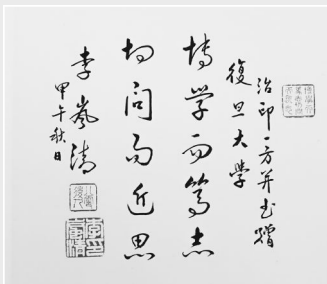 治印一方并书赠
复旦大学
博学而笃志
切问而近思
李岚清
甲午秋日